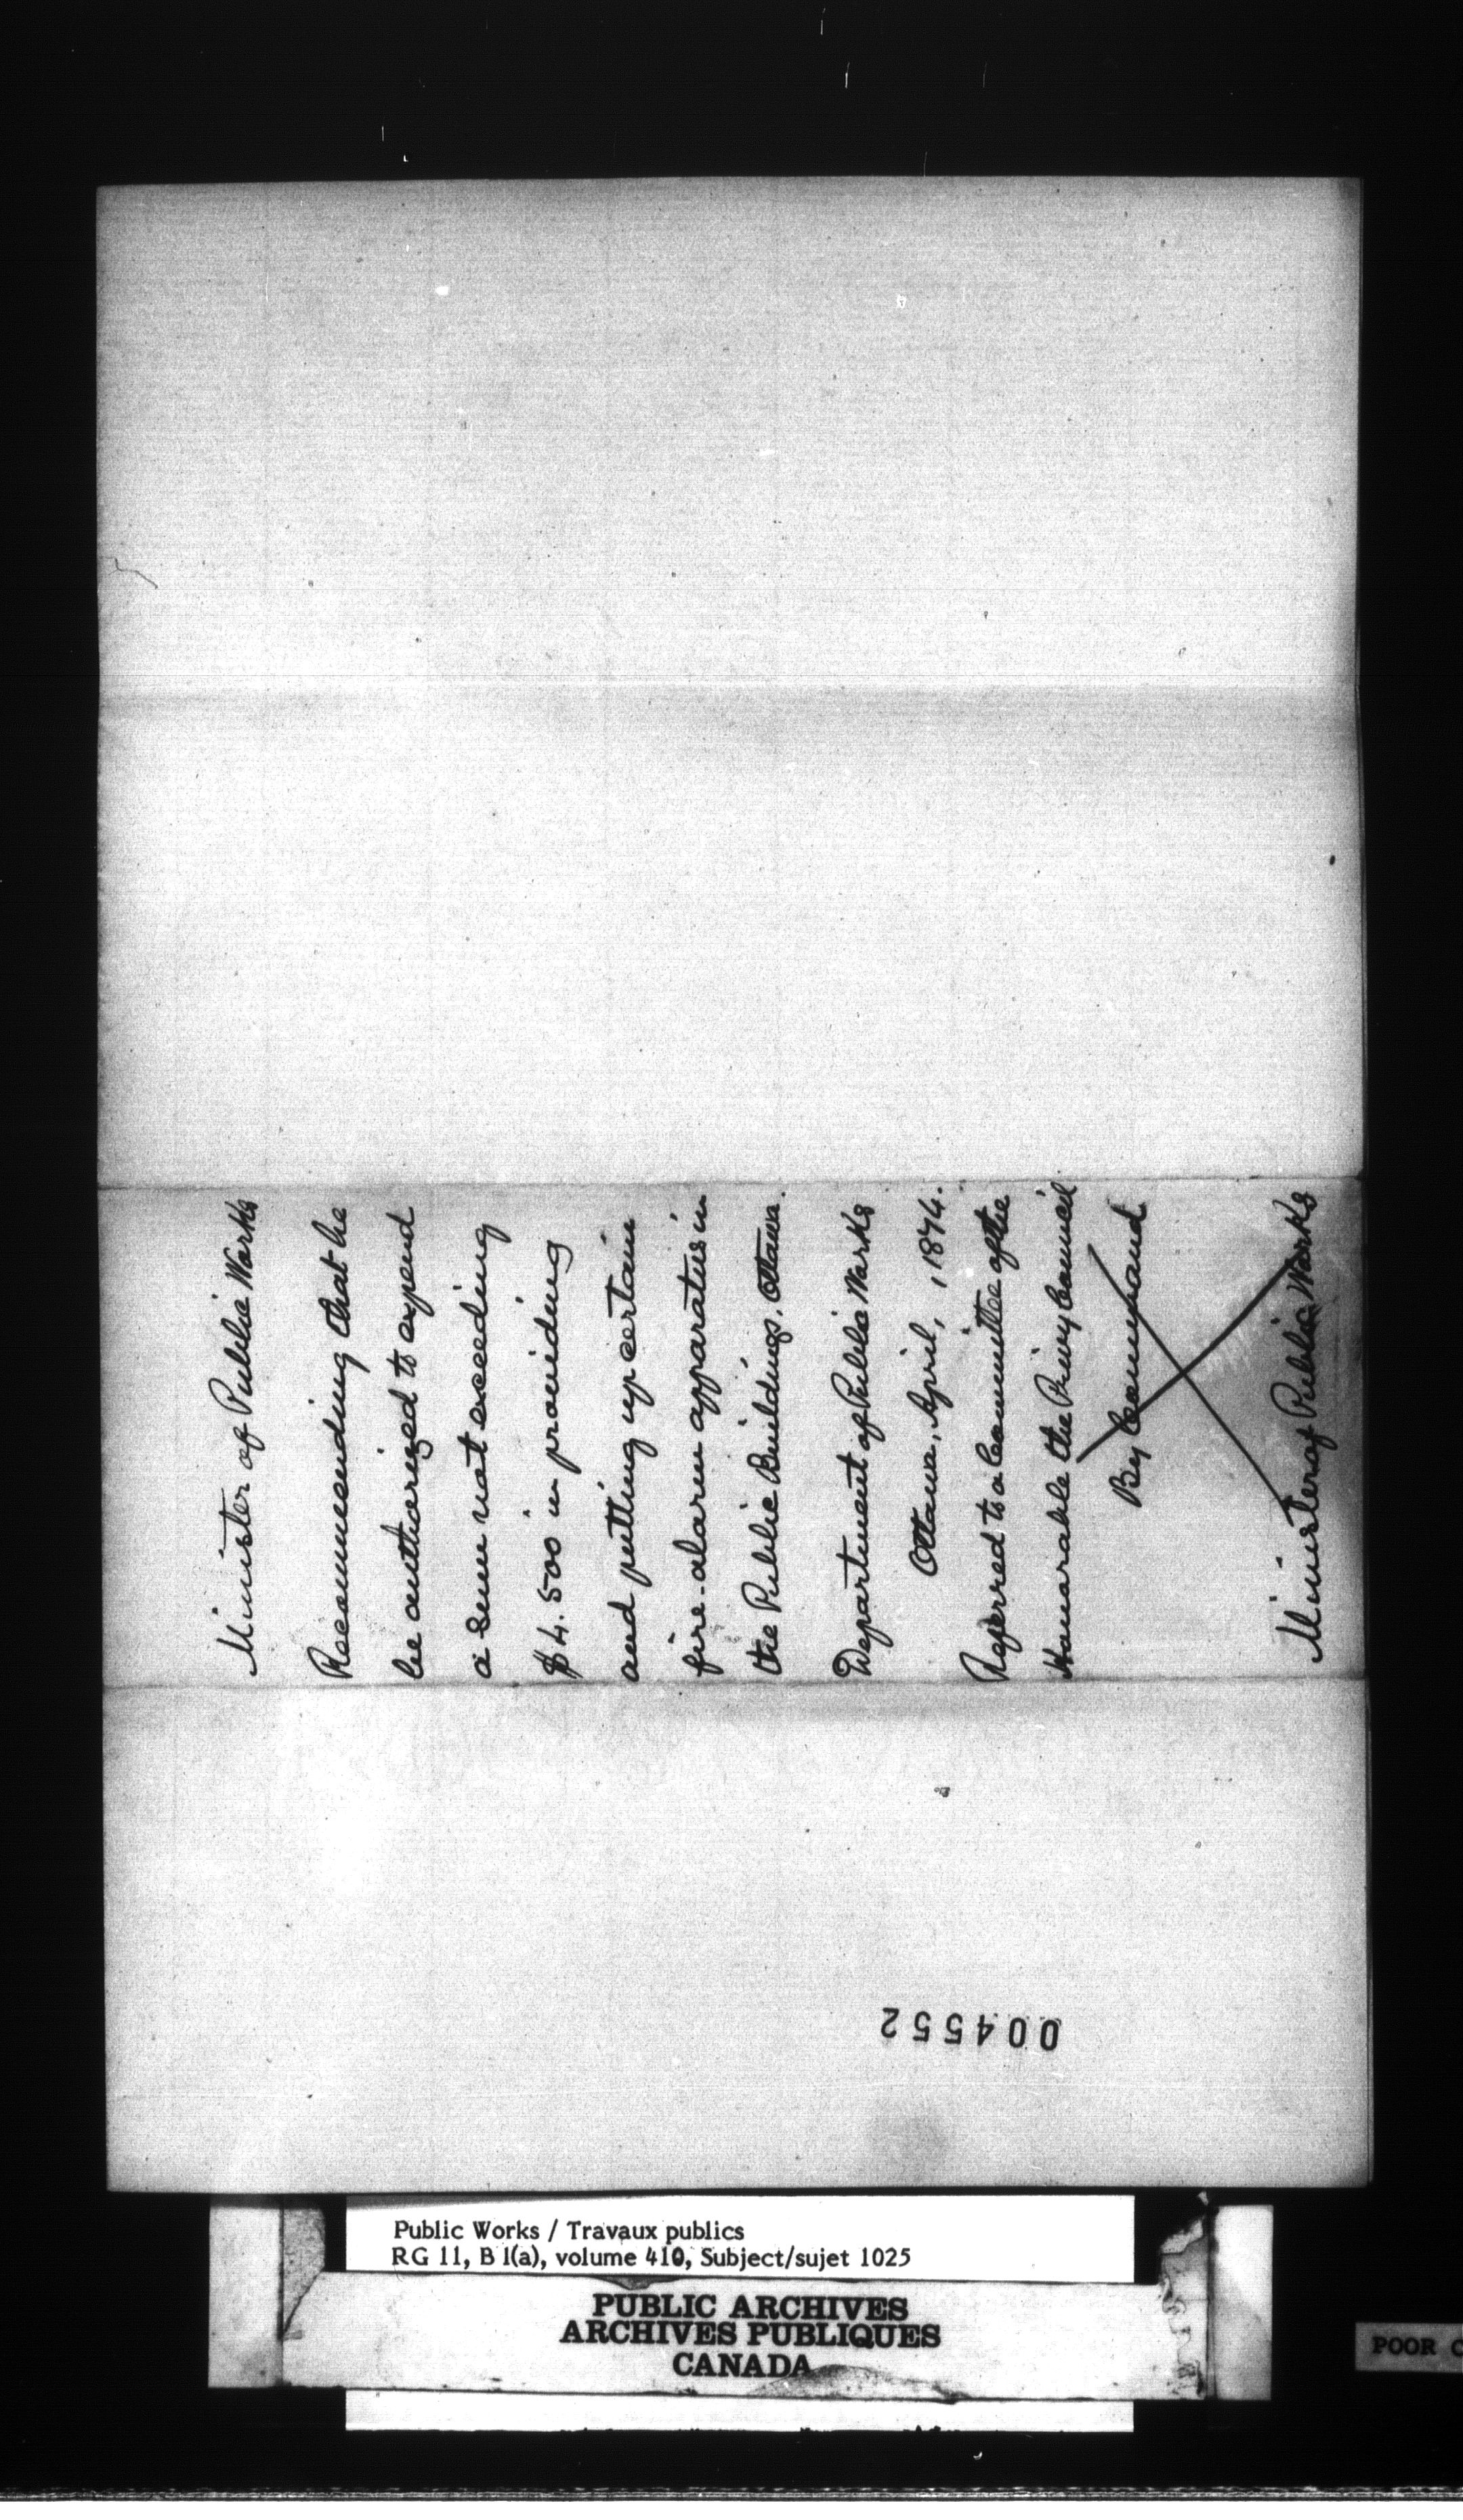 Minister of Public Works
Recommending that he
be authorized to expend
a sum not exceeding
$4.500 in providing
and putting up certain
fire-alarm apparatus in
the Public Buildings. Ottawa.
Department of Public Works
Ottawa, April, , 1874.
Referred to a Committee of the
Honorable the Privy Council
By Command
Minister of Public Works
004552
Public Works / Travaux publics
RG 11, B 1(a), volume 410, Subject/sujet 1025
PUBLIC ARCHIVES
ARCHIVES PUBLIQUES
CANADA
POOR C